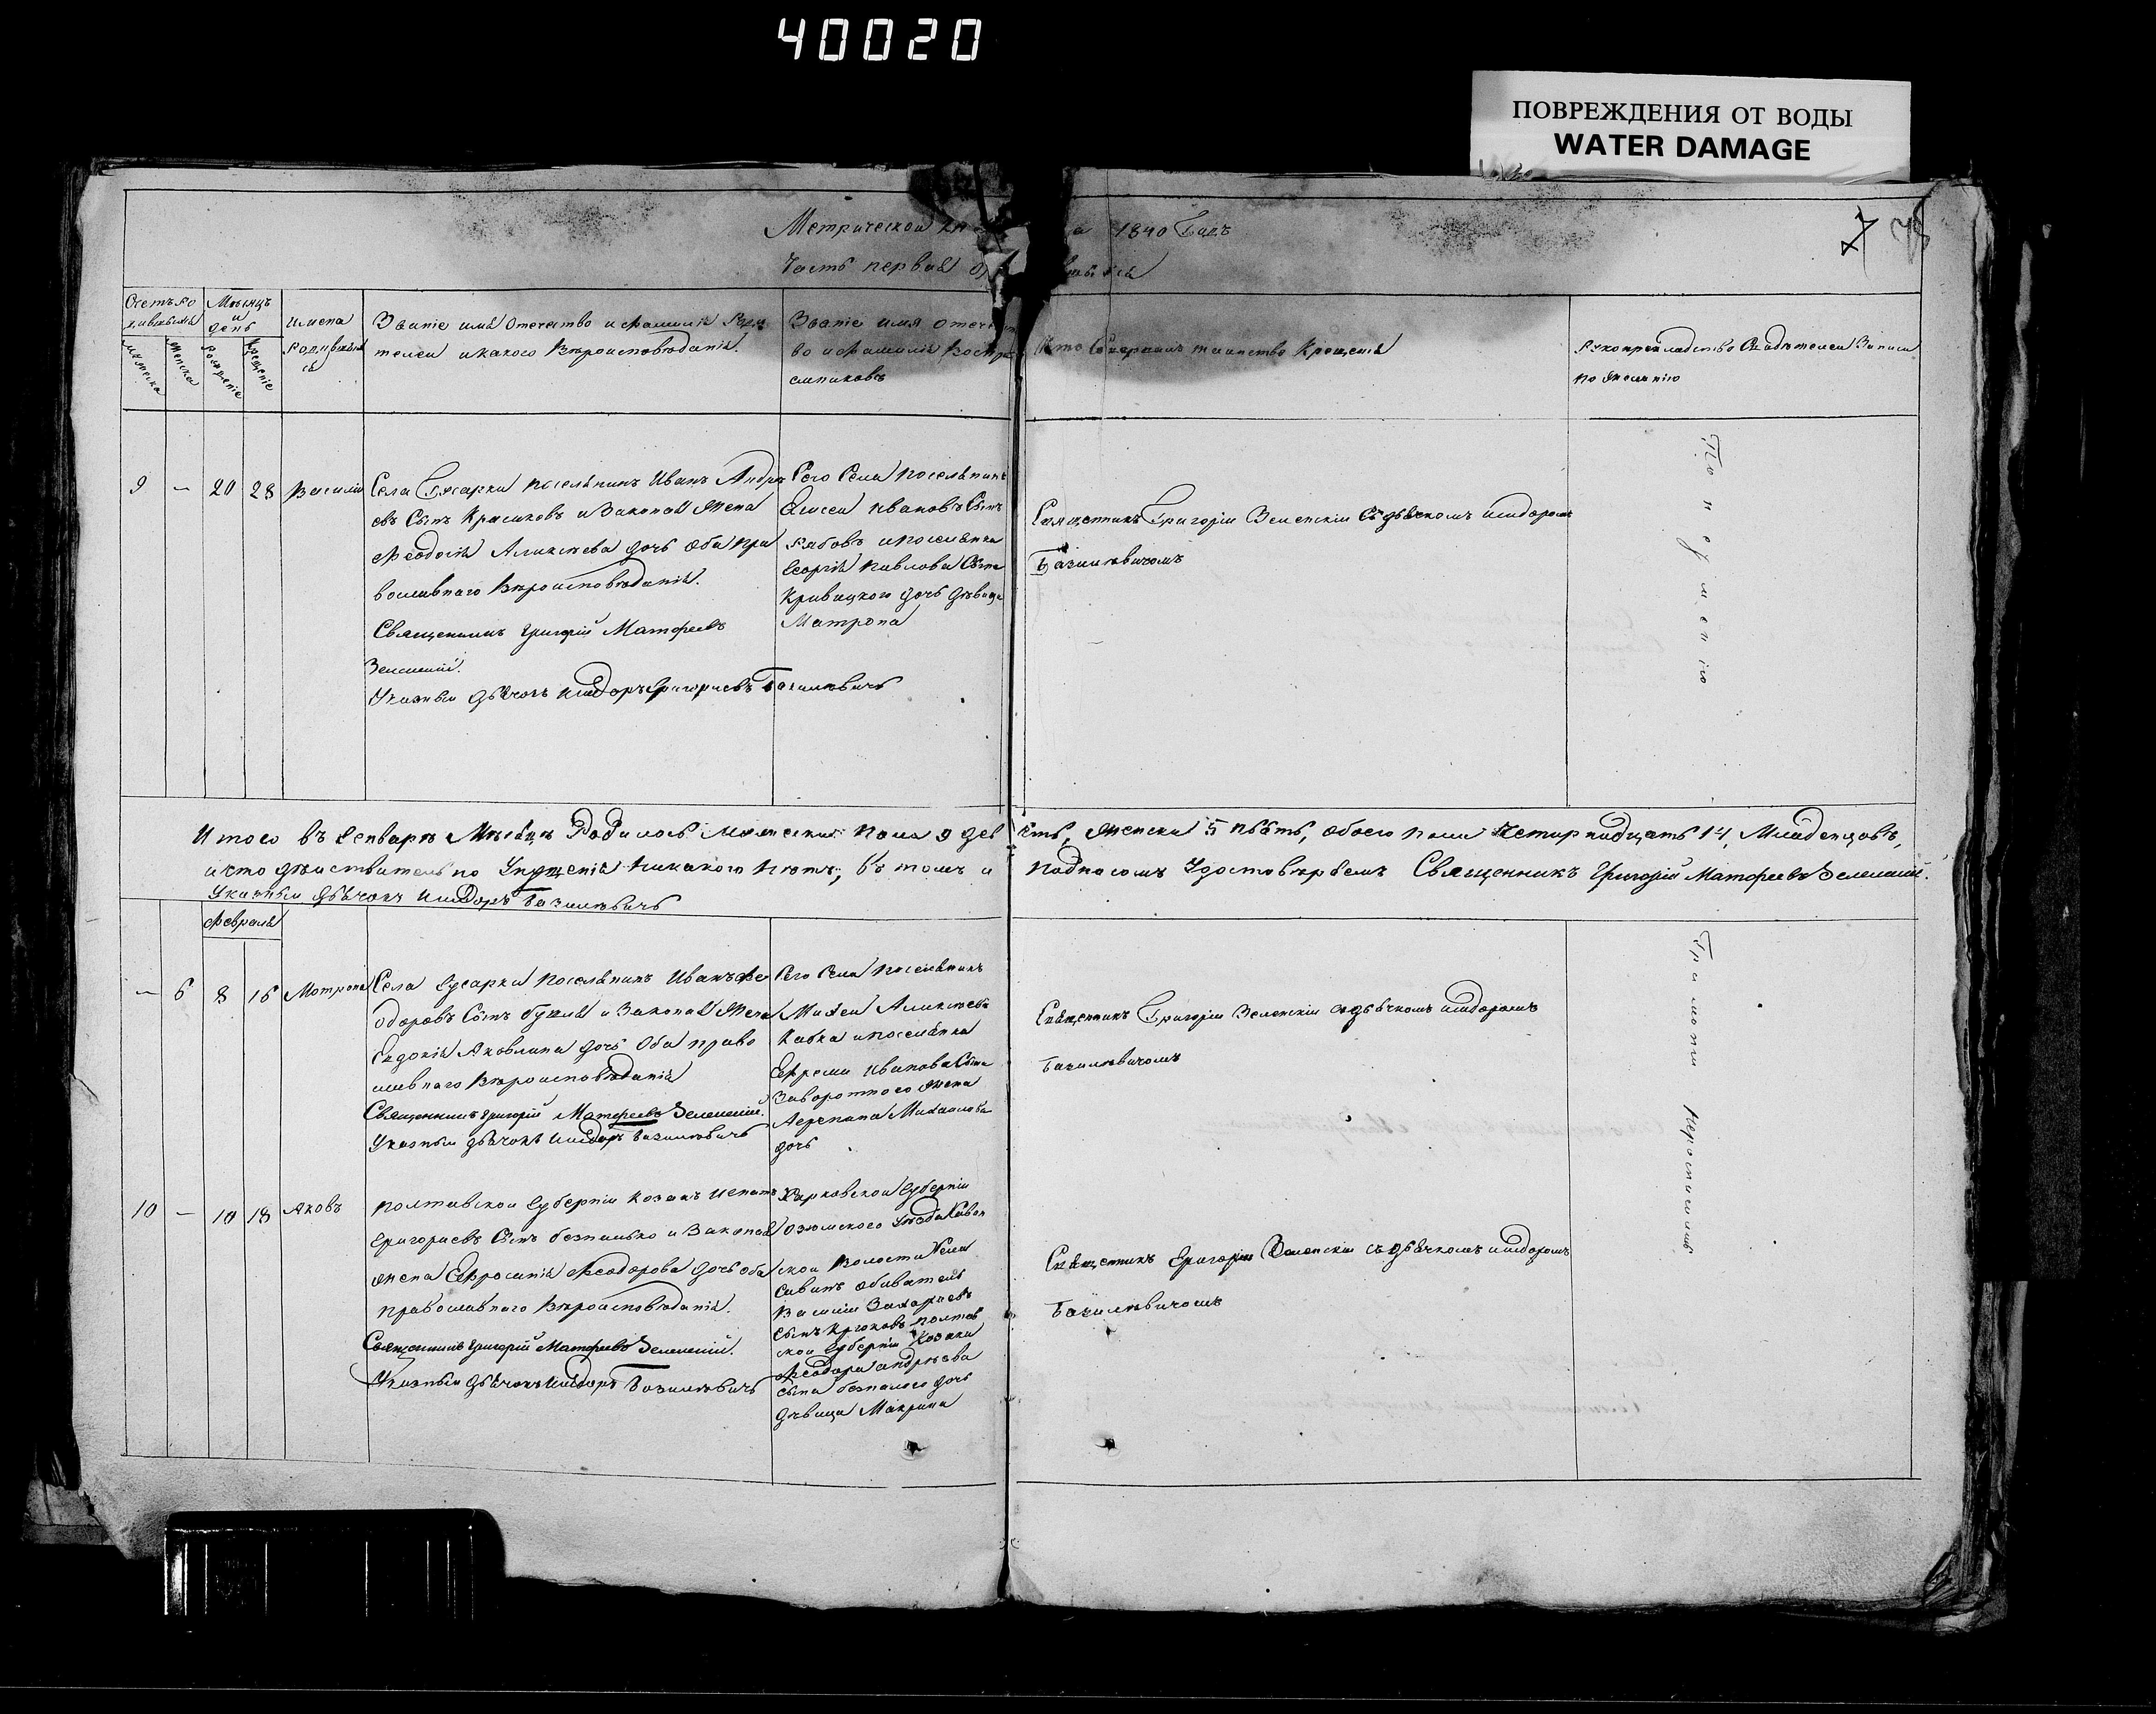 40020
ПОВРЕЖДЕНИЯ ОТ ВОДЫ
WATER DAMAGE
Метрической кн а 1840 Годъ
Часть первая о
Мѣсяцъ
и
день
Имена
Званіе имя Отечество и Фамилія Роди
телей и какого Вѣроисповѣданія.
Званіе имя отечест
во и Фамилія Воспрі
емниковъ
Кто Совершилъ таинство Крещенія
Рукоприкладство Свидѣтелей Записи
по желанію
9 — 20 28 Василій
Села Гусарки поселянинъ Иванъ Андре
евъ Сынъ Красиковъ и Законая Жена
Феодосія Аликсѣева дочь Оба пра
вославнаго Вѣроисповѣданія.
Священникъ Григорій Матфеевъ
Зеленскій.
Указный дьячокъ Исидоръ Григориевъ Базилювичъ
Сего Села поселянинъ
Елисей Ивановъ Сынъ
Рябовъ и поселянка
Георгія Павлова Сына
Кривицкого дочь дѣвица
Матрона
Священникъ Григорій Зеленскій Съ дьячкомъ исидоромъ
Базилювичомъ
Итого въ Генварѣ Мѣсяцѣ Родилось Мужеска пола 9 девять, Женска 5 пять, Обоего пола Четырнадцать 14, Младенцовъ,
и что дѣиствительно Упущенія никакого нѣтъ, въ томъ и подписомъ Удостовѣряемъ Священникъ Григорій Матфеевъ Зеленскій.
Указный дьячокъ Исидоръ Базилювичъ
Февраля
— 6 8 16 Матрона
Села Гусарки поселянинъ Иванъ Фе
одоровъ Сынъ и Законая Жена
Евдокія Яковлина дочь Оба право
славнаго Вѣроисповѣданія
Священникъ Григорій Матфеевъ Зеленскій.
Указный дьячокъ Исидоръ Базилювичъ
Сего Села поселянинъ
Михей Аликсѣевъ
и поселянка
Ефрема Иванова Сына
Заворотного Жена
Агрепина Михаилова
дочь
Священникъ Григорій Зеленскій съ дьячкомъ исидоромъ
Базилювичомъ
10 — 10 18 Яковъ
Полтавской Губерніи Козакъ Игнатъ
Григориевъ Сынъ и Законая
Жена Ефросинія Феодорова дочь Оба
Православнаго Вѣроисповѣданія.
Священникъ Григорій Матфеевъ Зеленскій.
Указный дьячокъ Исидоръ Базилювичъ
Харковской Губерніи
Изюмского Уезда
ской Волости
обиватель
Василій Захариевъ
Сынъ Крюковъ Полтав
ской Губерніи Козака
Феодора андрѣева
Сына безпалого дочь
дѣвица Макрина
Священникъ Григорій Зеленскій съ дьячкомъ исидоромъ
Базилювичомъ